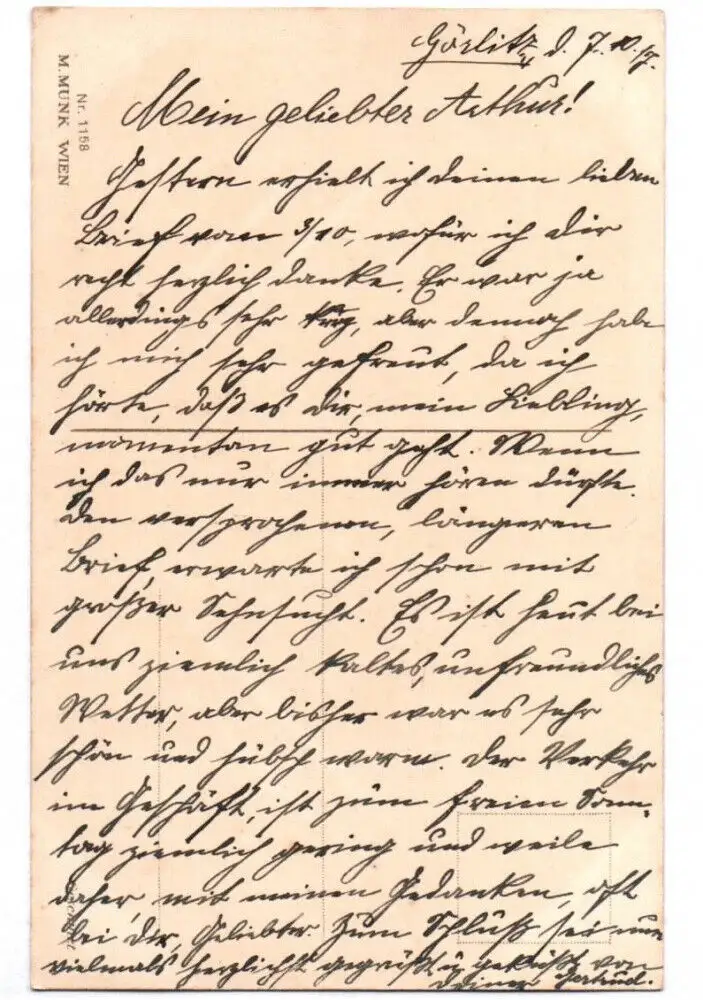 Görlitz, d. 7. 10. 17.
Mein geliebter Arthur!
Gestern erhielt ich deinen lieben
Brief vom 3/10, wofür ich Dir
recht herzlich danke. Er war ja
allerdings sehr kurz, aber dennoch habe
ich mich sehr gefreut, da ich
hörte, daß es dir, mein Liebling,
momentan gut geht. Wenn
ich das nur immer hören dürfte.
Den versprochenen, längeren
Brief, erwarte ich schon mit
großer Sehnsucht. Es ist heut bei
uns ziemlich kaltes, unfreundliches
Wetter, aber bisher war es sehr
schön und hübsch warm. Der Verkehr
im Geschäft, ist zum freien Sonn-
tag ziemlich gering und weile
daher, mit meinen Gedanken, oft
bei dir, Geliebter. Zum Schluß sei nun
vielmals herzlichst gegrüßt u. geküßt von
Deiner Gertrud.
Nr. 1158
M. MUNK WIEN